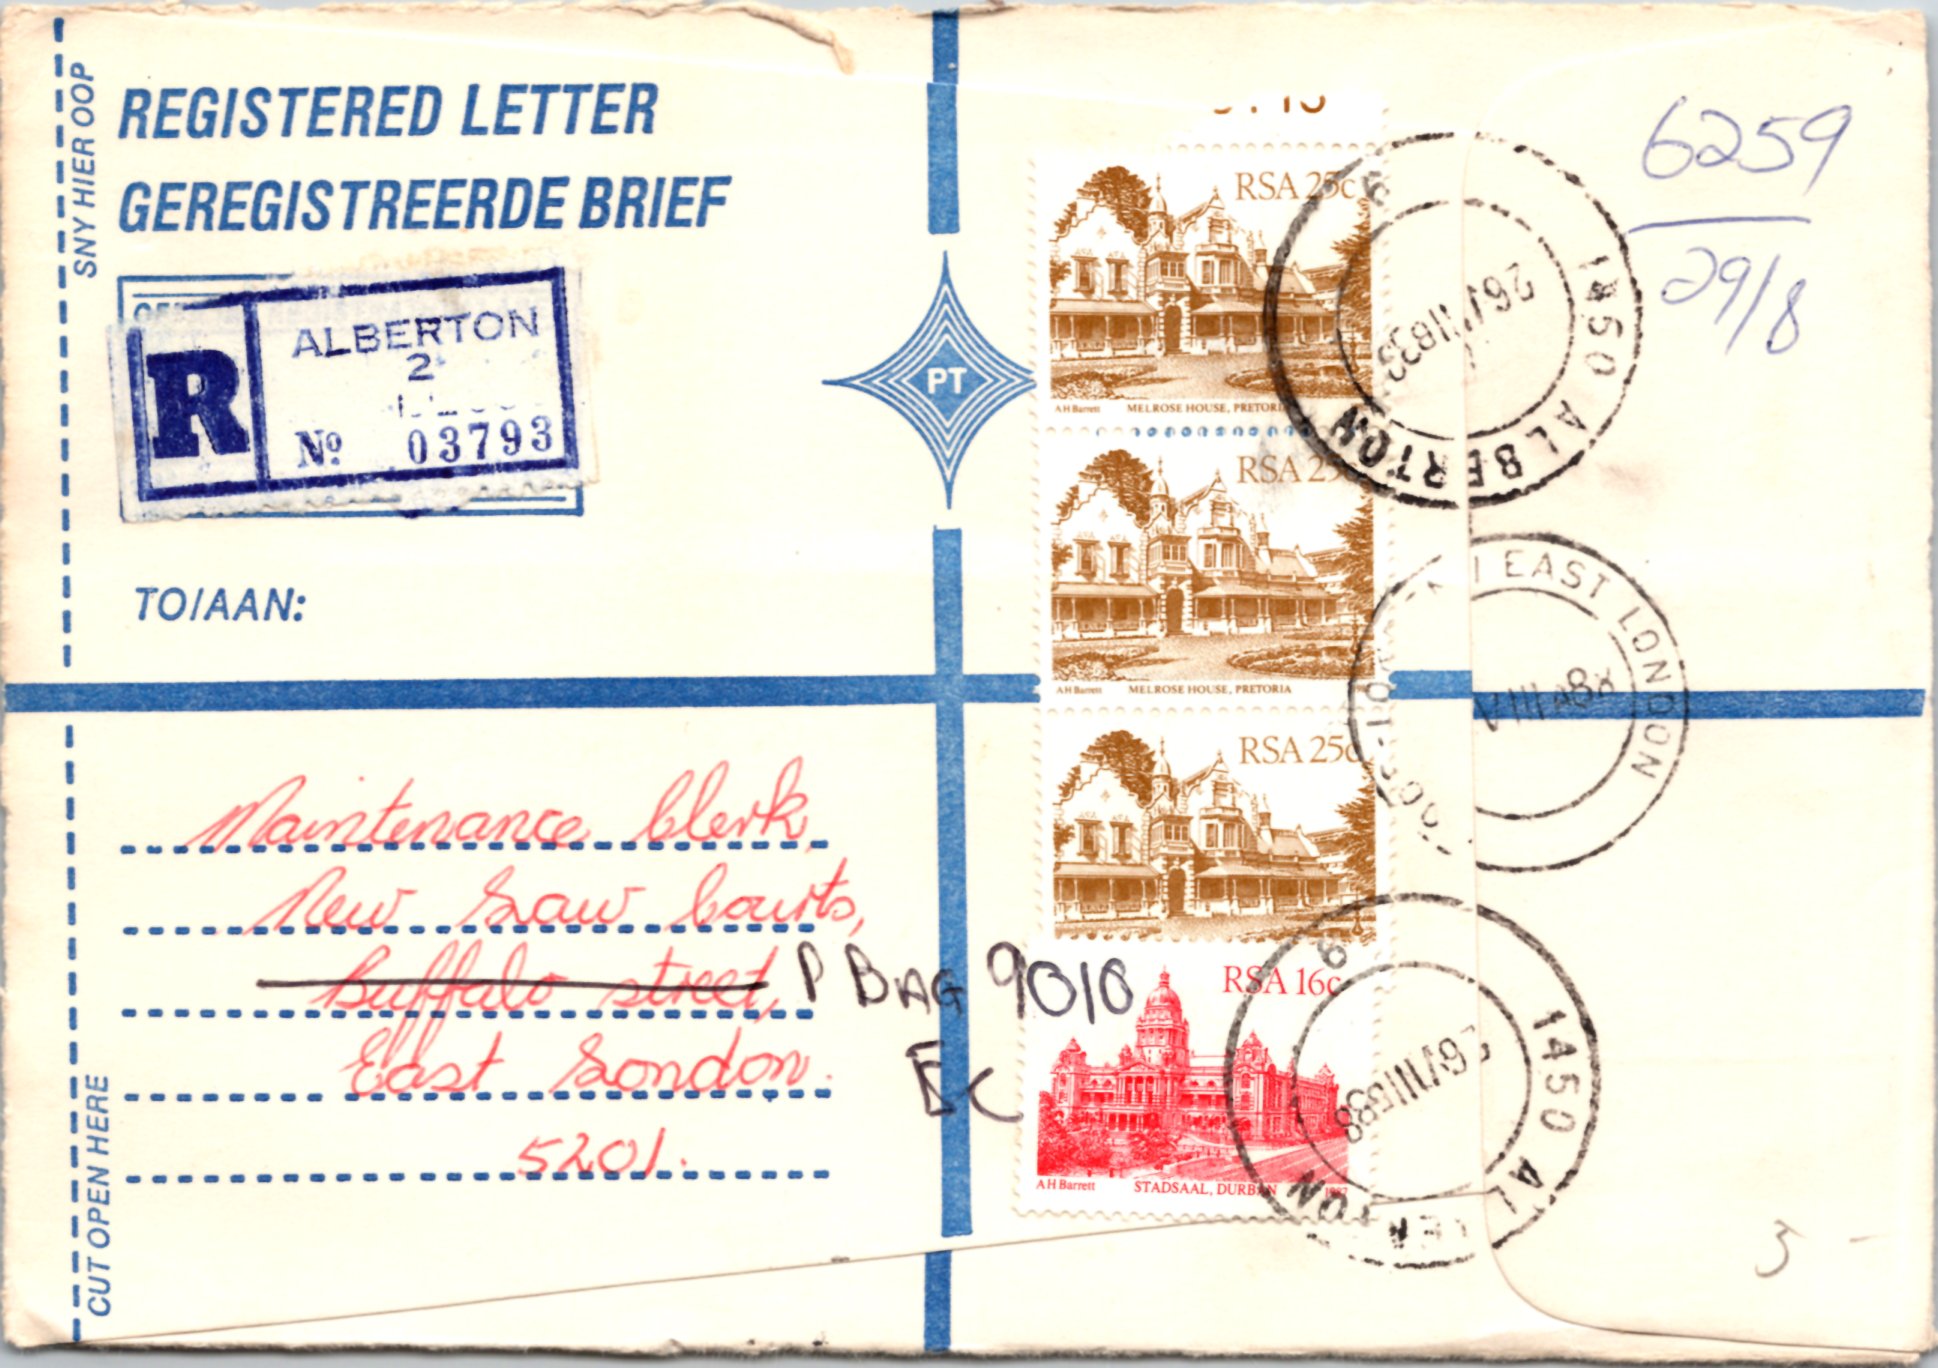 REGISTERED LETTER
GEREGISTREERDE BRIEF
SNY HIER OOP
R
ALBERTON
2
No 03793
PT
TO/AAN:
Maintenance Clerk,
New Law Courts,
Buffalo street, P BAG 9010
East London. EC
5201.
CUT OPEN HERE
RSA 25c
AH Barrett MELROSE HOUSE, PRETORIA
RSA 25c
AH Barrett MELROSE HOUSE, PRETORIA
RSA 25c
RSA 16c
AH Barrett STADSAAL, DURBAN 1987
6259
29/8
1450 ALBERTON
EAST LONDON
VIII
1450 AL ERTON
3 -